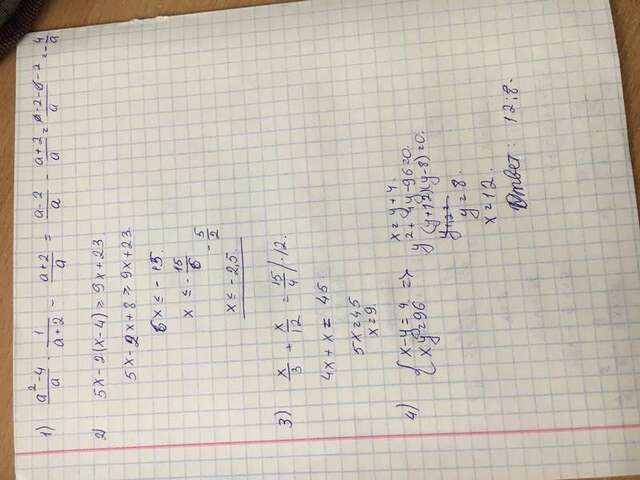 1) (a²-4)/a · 1/(a+2) - (a+2)/a = (a-2)/a - (a+2)/a = (a-2-a-2)/a = -4/a
2) 5x-2(x-4) ≥ 9x+23
5x-2x+8 ≥ 9x+23.
6x ≤ -15.
x ≤ -15/6 - 5/2
x ≤ -2.5.
3) x/3 + x/12 = 15/4 /·12.
4x+x = 45.
5x=45
x=9.
4) { x-y=4, xy=96 => x=y+4.
y²+4y-96=0.
(y+12)(y-8)=0.
y=8.
x=12.
Ответ: 12;8.